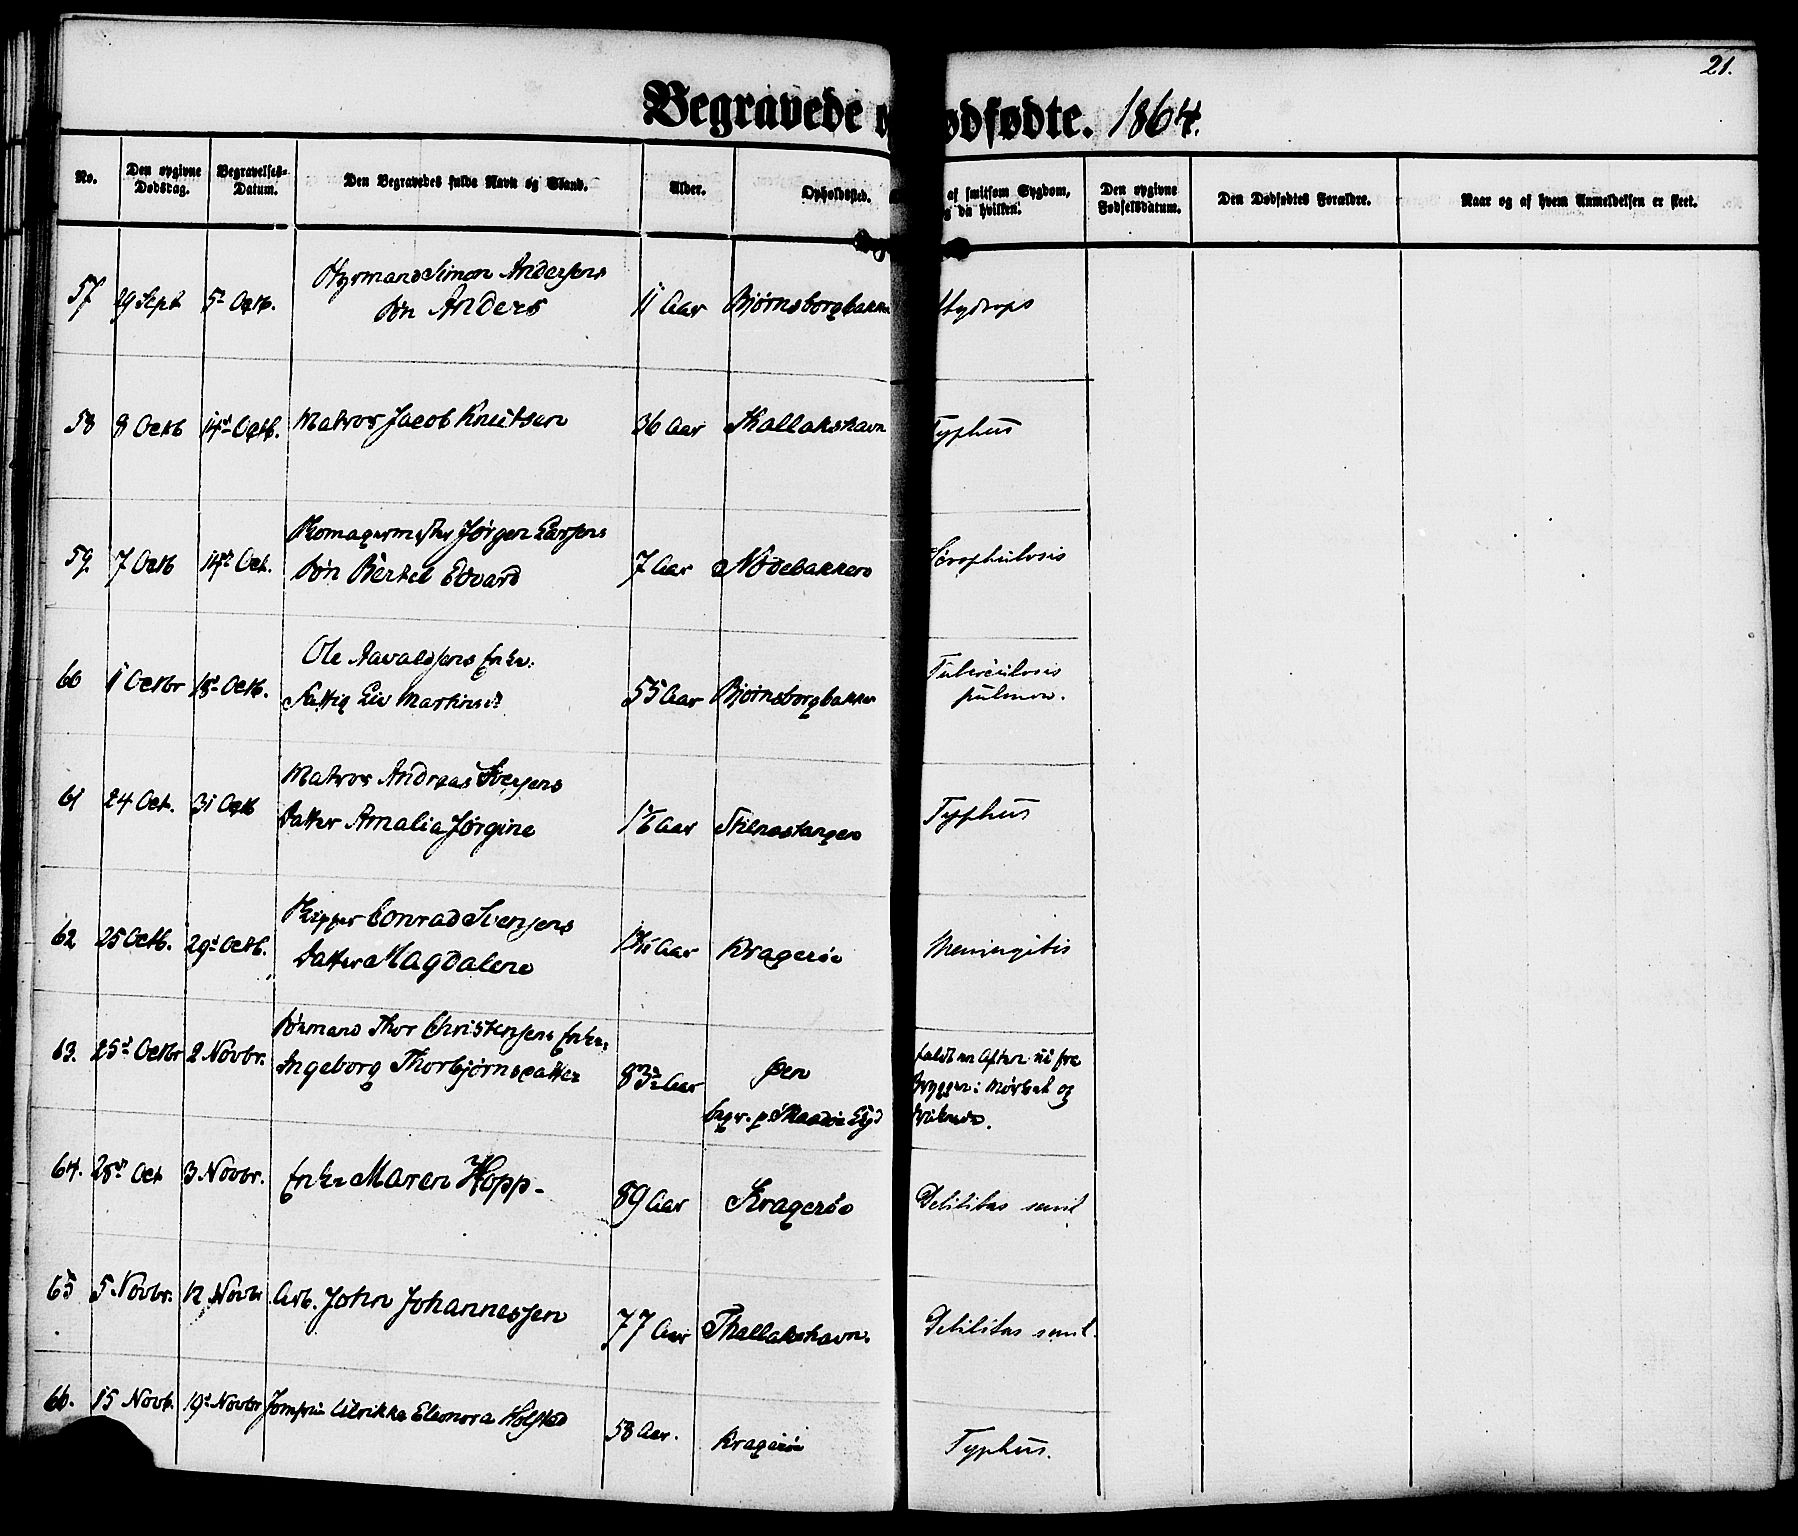 21.
Begravede o ødfødte. 1864.
No. Den opgivne Dødsdag. Begravelses-Datum. Den Begravedes fulde Navn og Stand. Alder. Opholdssted. af smitsom Sygdom, da hvilken. Den opgivne Fødselsdatum. Den Dødfødtes Forældre. Naar og af hvem Anmeldelsen er skeet.
57 29 Sept 5t Octb. Styrmand Simon Andersens
Søn Anders 11 Aar Bjørnsborgbakken Hydrops
58 8 Octb 14d Octb. Matros Jacob Knutsen 36 Aar Thallakshavn Typhus
59. 7 Octb 14d Oct. Skomagermester Jørgen Larsens
Søn Bertel Edvard 7 Aar Nødebakken Scrophulosis
60 11 Octbr 18d Octb. Ole Aavaldsens Enke.
Fattig Liv Martinsd. 55 Aar Bjørnsborgbakken Tuberculosis
pulmon.
61 24 Oct. 31 Octb Matros Andreas Iversens
Datter Amalia Jørgine Aar Stilnestangen Typhus
62 25 Octb. 29d Octb. Skipper Conrad Svensens
Datter Magdalene Aar Kragerøe Meningitis
63. 25d Octbr 2 Novbr. Sømand Thor Christensens Enke
Ingeborg Thorbjørnsdatter 83 Aar Øen
begr. p. Skaadøe faldt en Aften ud fra
Bryggen i Mørket og
druknede.
64. 28d Oct 3 Novbr. Enke Maren Hopp. 89 Aar Kragerøe Debilitas senil
65 5 Novbr. 12 Novbr Arb. John Johannessen 77 Aar Thallakshavn. Debilitas senil.
66. 15 Novb. 19d Novbr Jomfru Ulrikka Eleonora Holsted 58 Aar. Kragerøe Typhus.